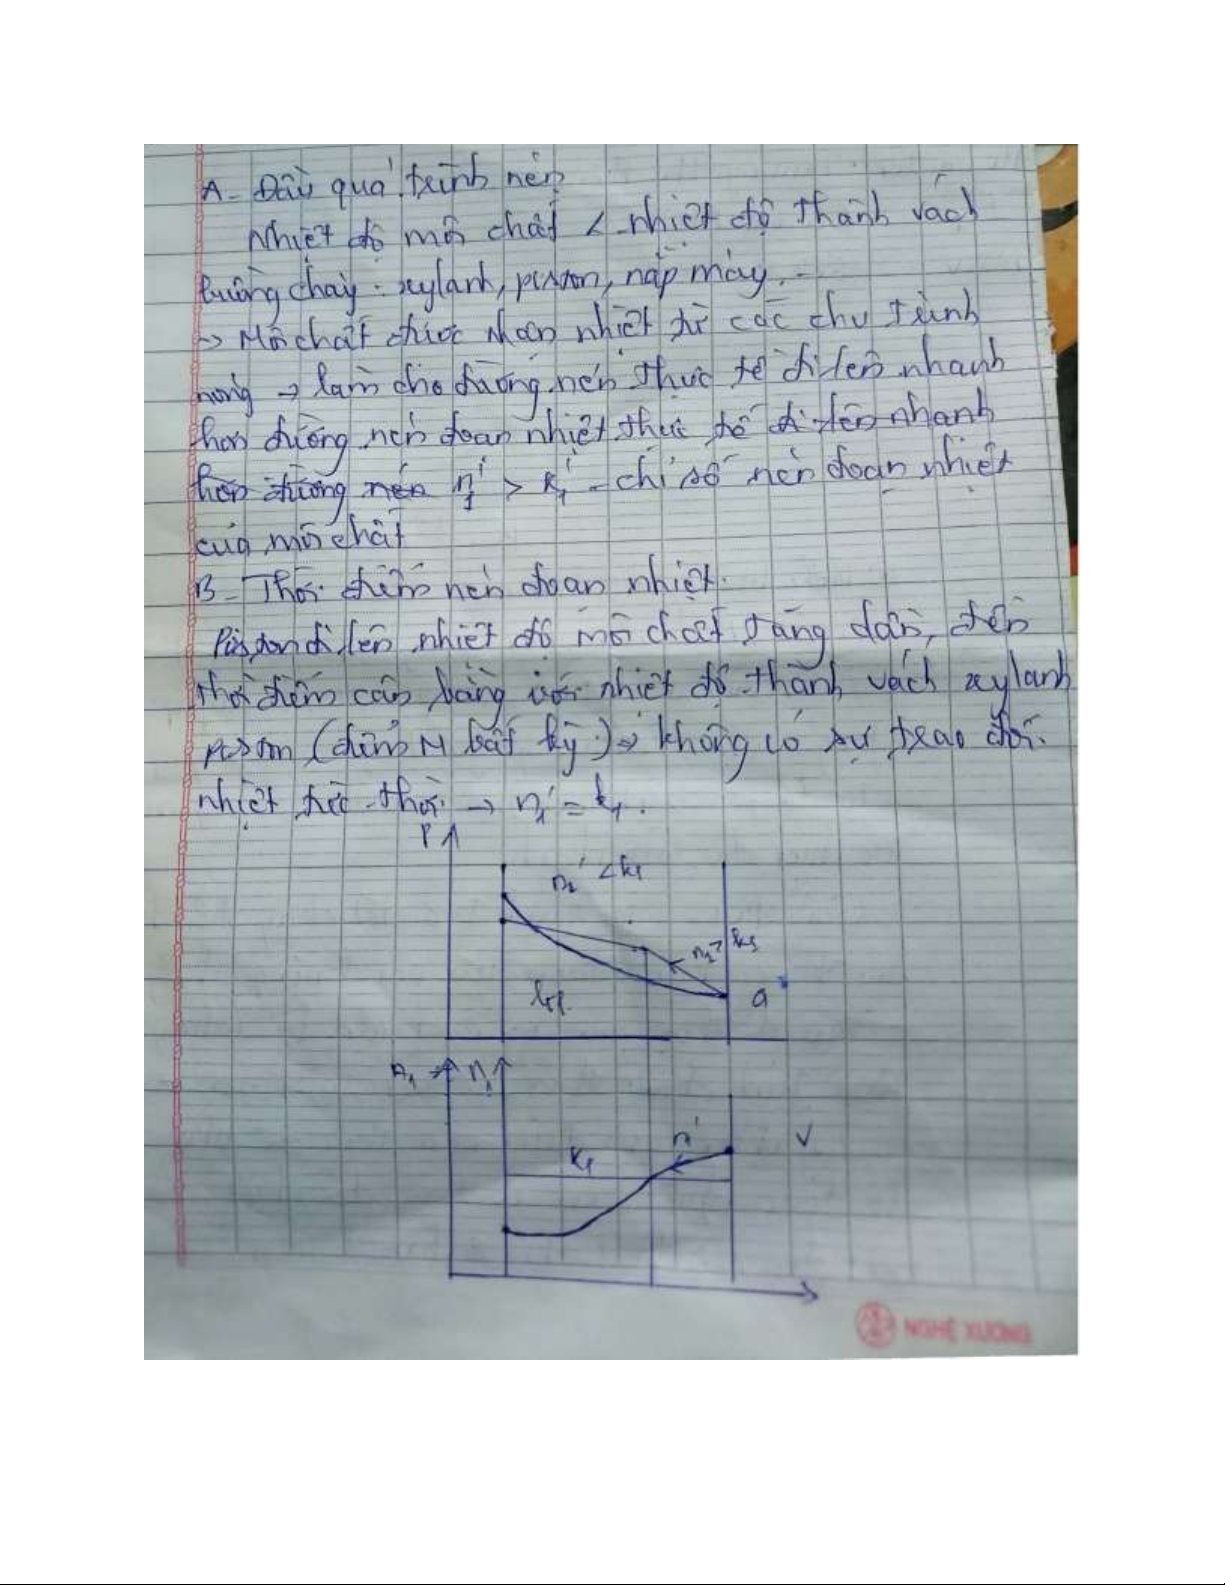 A - Đầu quá trình nén
Nhiệt độ môi chất < nhiệt độ thành vách
buồng cháy: xylanh, piston, nắp máy.
-> Môi chất được nhận nhiệt từ các chu trình
nóng -> làm cho đường nén thực tế đi lên nhanh
hơn đường nén đoạn nhiệt thực tế đi lên nhanh
hơn đường nén n₁' > k₁' - chỉ số nén đoạn nhiệt
của môi chất
B - Thời điểm nén đoạn nhiệt.
Piston đi lên nhiệt độ môi chất tăng dần, đến
thời điểm cân bằng với nhiệt độ thành vách xylanh
piston (điểm M bất kỳ) -> không có sự trao đổi
nhiệt tức thời -> n₁' = k₁.
P
n₁' < k₁
n₁' > k₁
a
n₁
n'
V
k₁
NGHỆ XƯƠNG